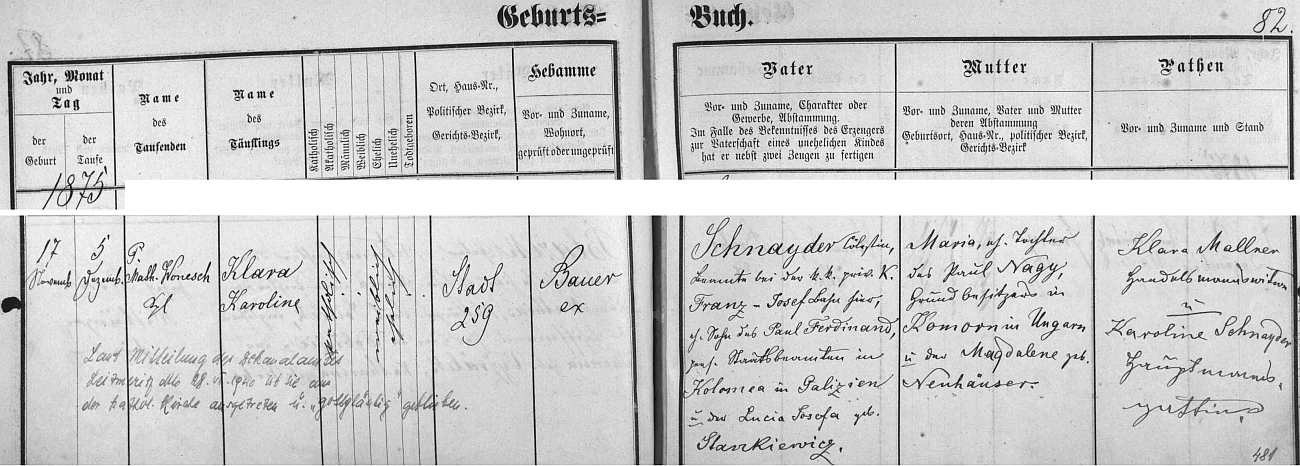 Geburts= Buch.
82.
Jahr, Monat
und
Tag
der
Geburt
der
Taufe
Name
des
Taufenden
Name
des
Täuflings
Katholisch
Akatholisch
Männlich
Weiblich
Ehelich
Unehelich
Todtgeboren
Ort, Haus-Nr.,
Politischer Bezirk,
Gerichts-Bezirk,
Hebamme
Vor- und Zuname,
Wohnort,
geprüft oder ungeprüft
Vater
Vor- und Zuname, Charakter oder
Gewerbe, Abstammung.
Im Falle des Bekenntnisses des Erzengers
zur Vaterschaft eines unehelichen Kindes
hat er nebst zwei Zeugen zu fertigen
Mutter
Vor- und Zuname, Vater und Mutter
deren Abstammung
Geburtsort, Haus-Nr., politischer Bezirk,
Gerichts-Bezirk
Pathen
Vor- und Zuname und Stand
1875
17
Novemb.
5
Dezemb.
P.
Math. Wonesch
Klara
Karoline
katholisch
weiblich
ehelich
Stadt
259
Bauer
ex
Laut Mitteilung des Dekanalamtes
Leitmeritz dto 28. VI. 1940 ist sie aus
der kathol. Kirche ausgetreten u. „gottgläubig" geblieben.
Schnayder Cölestin,
Beamte bei der k.k. priv. K.
Franz-Josef Bahn hier,
eh. Sohn des Paul Ferdinand,
pens. Staatsbeamten in
Kolomea in Galizien
u der Lucia Josefa geb.
Starzkiewicz.
Maria, eh. Tochter
des Paul Nagy,
Grundbesitzers in
Komorn in Ungarn
u der Magdalene geb.
Neuhäuser.
Klara Mallner
Handelsmannswitwe
u
Karoline Schnayder
Hauptmanns-
gattin
481